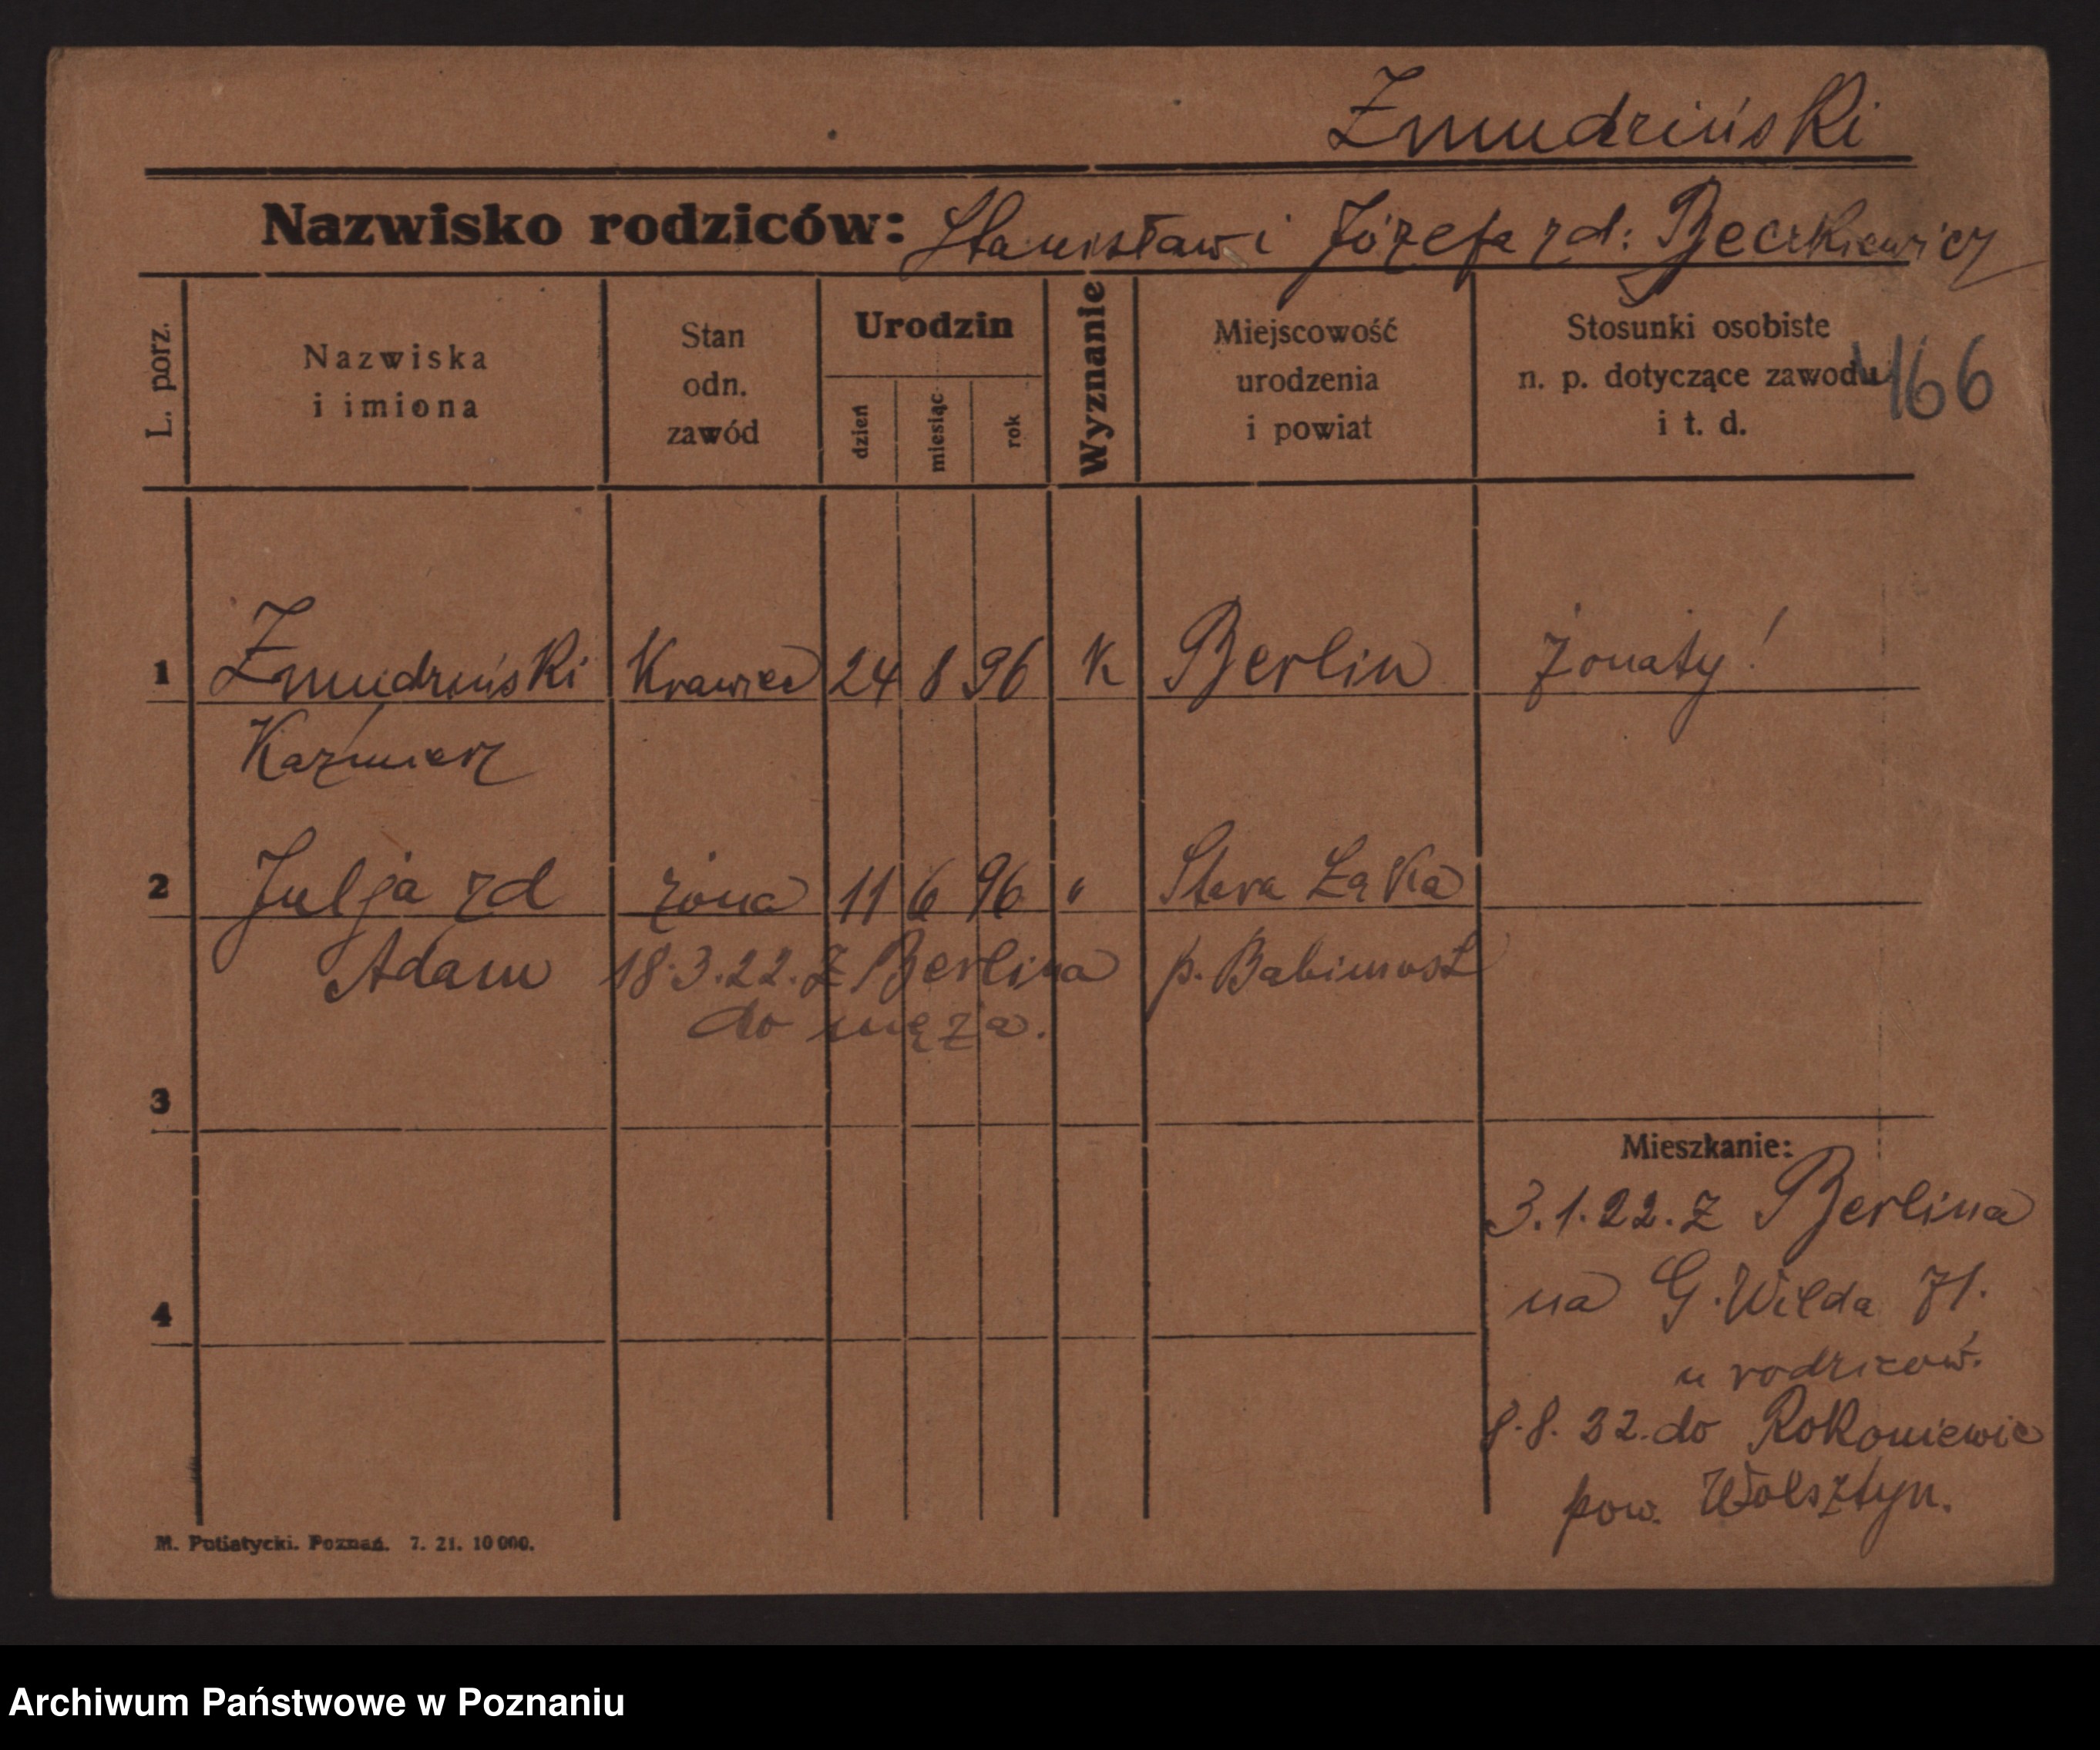 Żmudziński
Nazwisko rodziców: Stanisław i Józefa zd: Beczkiewicz
L. porz.
Nazwiska
i imiona
Stan
odn.
zawód
Urodzin
dzień
miesiąc
rok
Wyznanie
Miejscowość
urodzenia
i powiat
Stosunki osobiste
n. p. dotyczące zawodu
i t. d.
166
1 Żmudziński Krawiec 24 8 96 K Berlin żonaty!
Kaźmierz
2 Julja zd żona 11 6 96 " Stara Łąka
Adam 18.3.22. Z Berlina p. Babimost
do męża.
3
Mieszkanie:
3.1.22. Z Berlina
na G. Wilda 71.
u rodziców.
8.8.22. do Rakoniewic
pow. Wolsztyn.
4
M. Putiatycki. Poznań. 7. 21. 10 000.
Archiwum Państwowe w Poznaniu